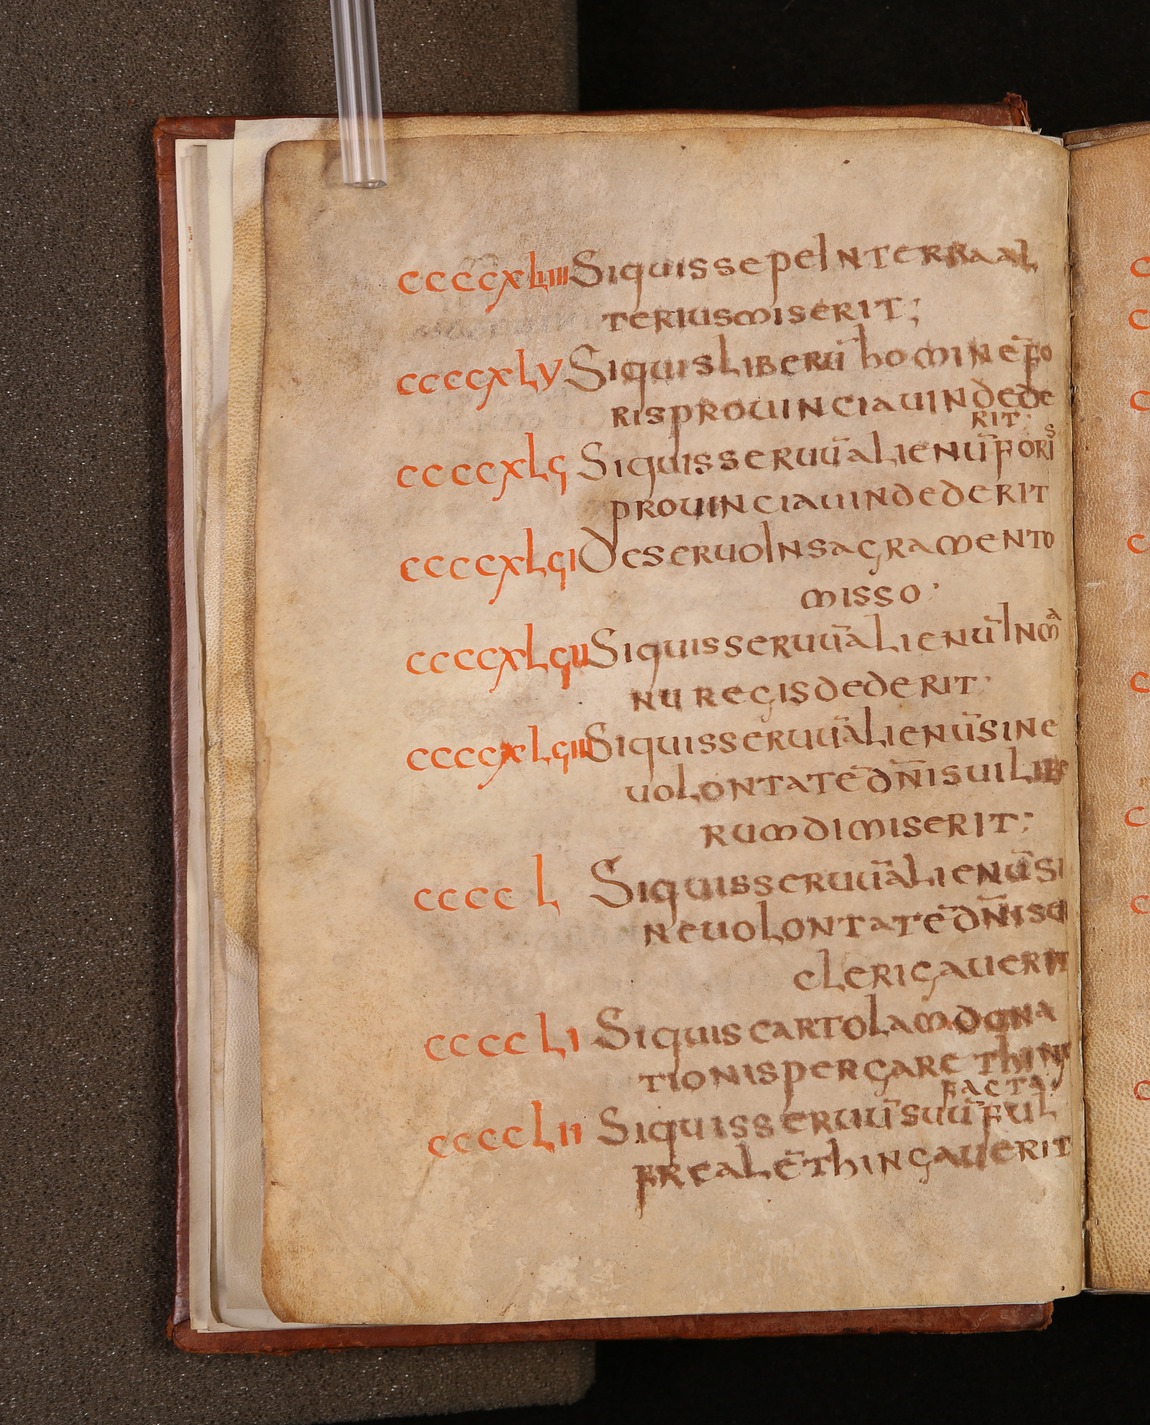 ccccxLiiii Siquissepe INTERRAAL
TERIUSMISERIT;
ccccxLv SiquisLIBERū hoMINEFO
RISPROUINCIAUINDEDE
RIT;
ccccxLς SiquisSERUUāLIENūFORIS
PROUINCIAUINDEDERIT
ccccxLςi DESERUOINSACRAMENTO
MISSO·
ccccxLςii SiquisSERUUāLIENūINMA
NUREGISDEDERIT·
ccccxLςiii SiquisSERUUāLIENūSINE
UOLONTATEDN̄ISUILIBE
RUMDIMISERIT;
cccc L SiquisSERUUāLIENūSI
NEUOLONTATEDN̄ISUI
CLERICAUERIT
cccc Li SiquisCARTOLAMDONA
TIONISPERGARETHINX
FACTA;
cccc Lii SiquisSERUUSUUFUL
FREALEThINGAUERIT